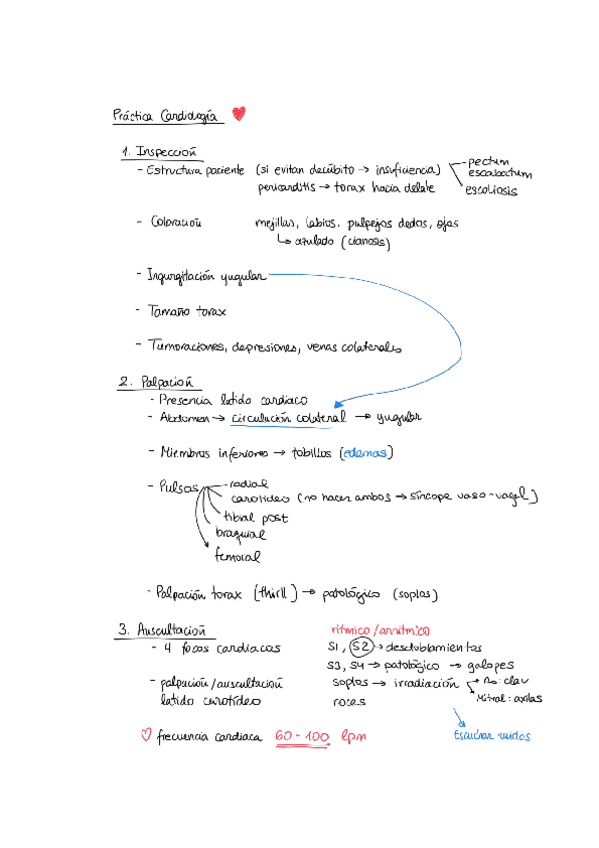 Práctica Cardiología
1. Inspección
- Estructura paciente (si evitan decúbito → insuficiencia)
pectum
escabactum
pericarditis → torax hacia delate
escoliosis
- Coloración mejillas, labios, pulpejos dedos, ojos
↳ azulado (cianosis)
- Ingurgitación yugular
- Tamaño torax
- Tumoraciones, depresiones, venas colaterales
2. Palpación
- Presencia latido cardiaco
- Abdomen → circulación colateral → yugular
- Miembros inferiores → tobillos (edemas)
- Pulsos radial
carotídeo (no hacer ambos → síncope vaso-vagal)
tibial post
braquial
femoral
- Palpación torax (thirll) → patológico (soplos)
3. Auscultación rítmico/arrítmico
- 4 focos cardiacos S1, S2 → desdoblamientos
S3, S4 → patológico → galopes
- palpación/auscultación soplos → irradiación → Ao: clav
latido carotídeo roces Mitral: axilas
♡ frecuencia cardiaca 60-100 lpm Escuchar ruidos